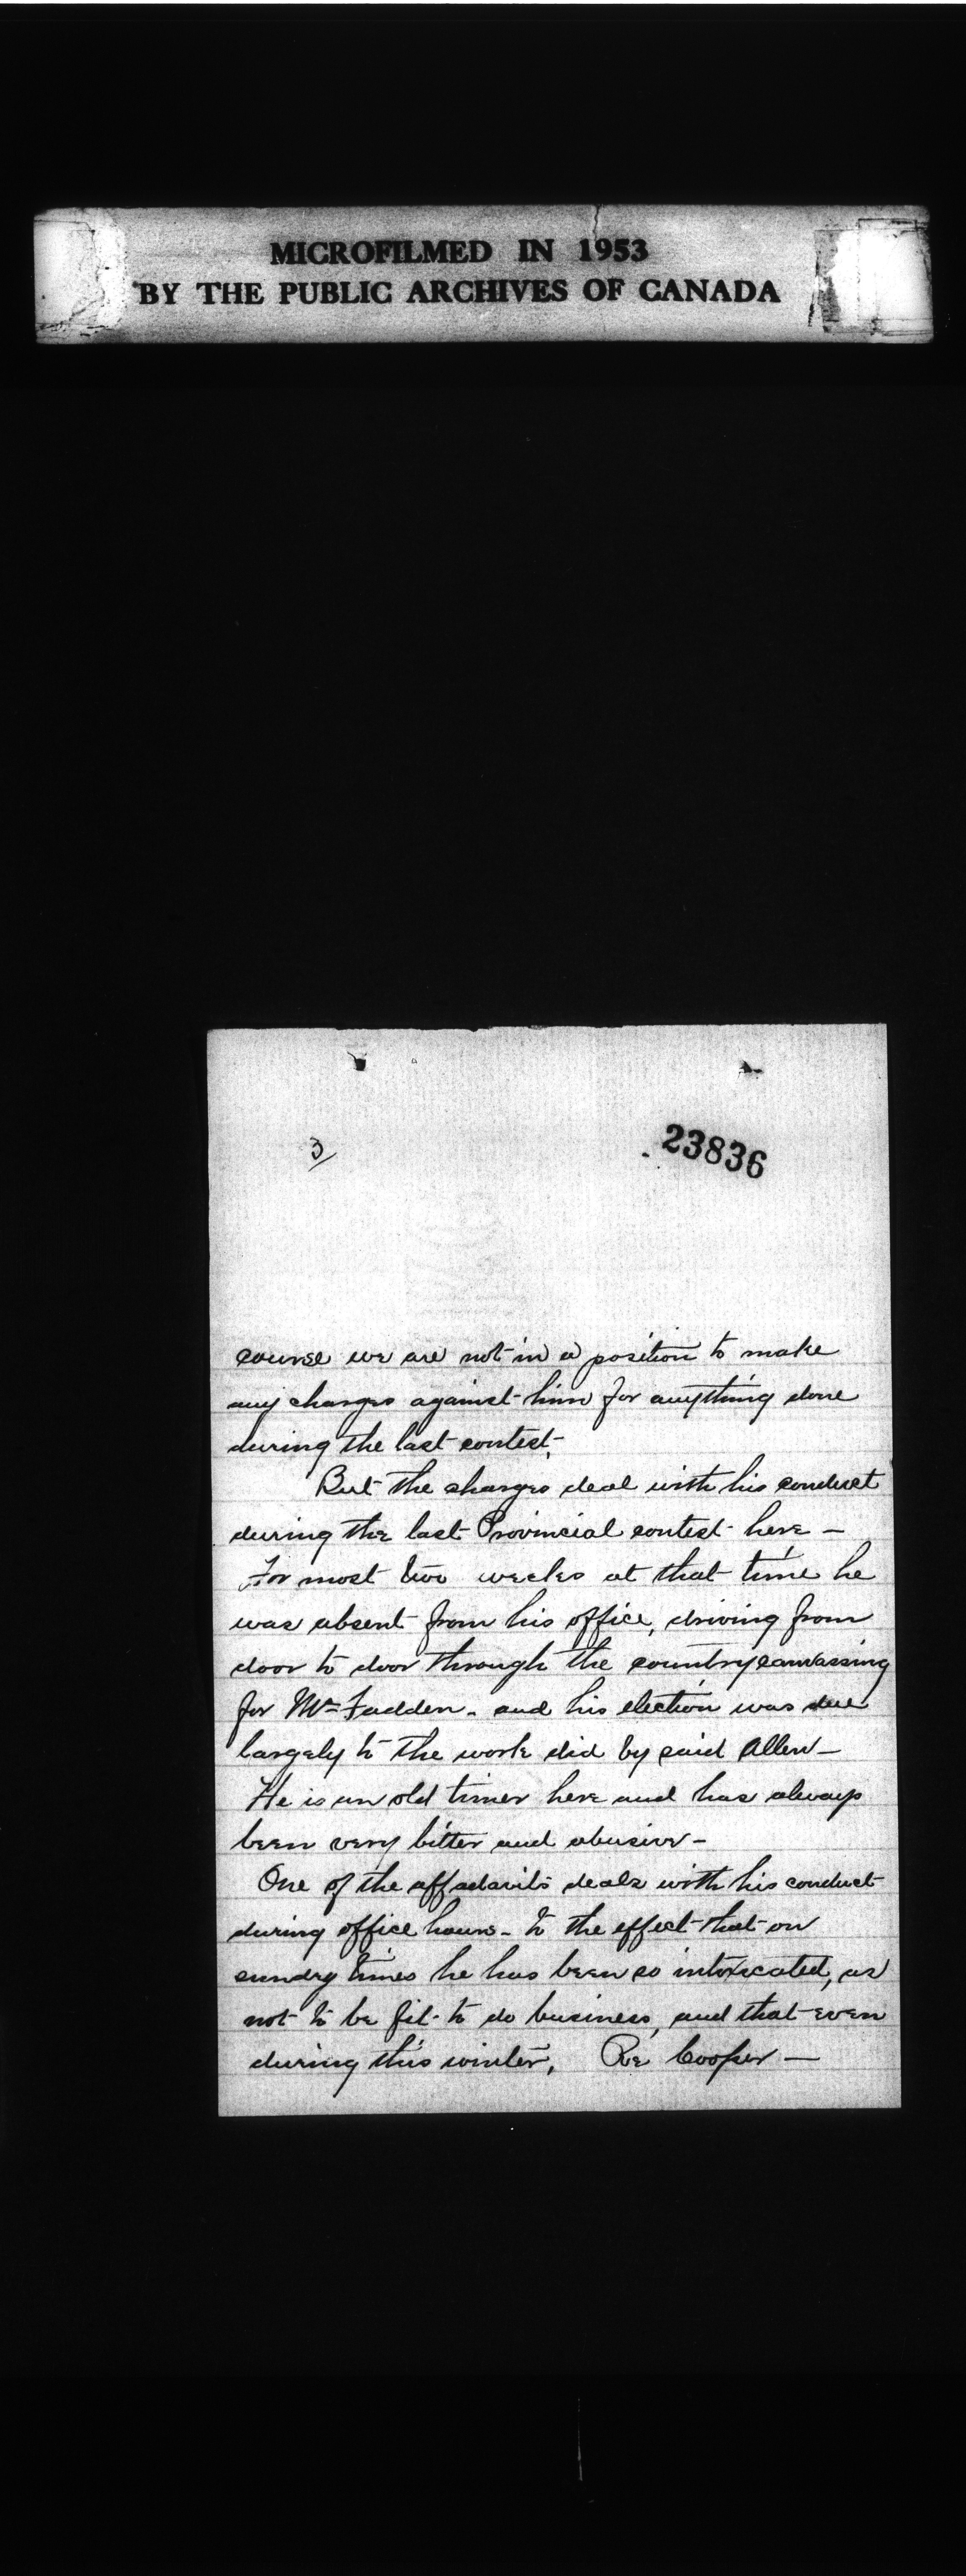 MICROFILMED IN 1953
BY THE PUBLIC ARCHIVES OF CANADA
3
23836
course we are not in a position to make
any charges against him for anything done
during the last contest.
But the charges deal with his conduct
during the last Provincial contest here —
For most two weeks at that time he
was absent from his office, driving from
door to door through the country canvassing
for Mc Fadden - and his election was due
largely to the work did by said Allen —
He is an old timer here and has always
been very bitter and abusive —
One of the affadavits deals with his conduct
during office hours - to the effect that on
sundry times he has been so intoxicated, as
not to be fit to do business, and that even
during this winter, Re Cooper —